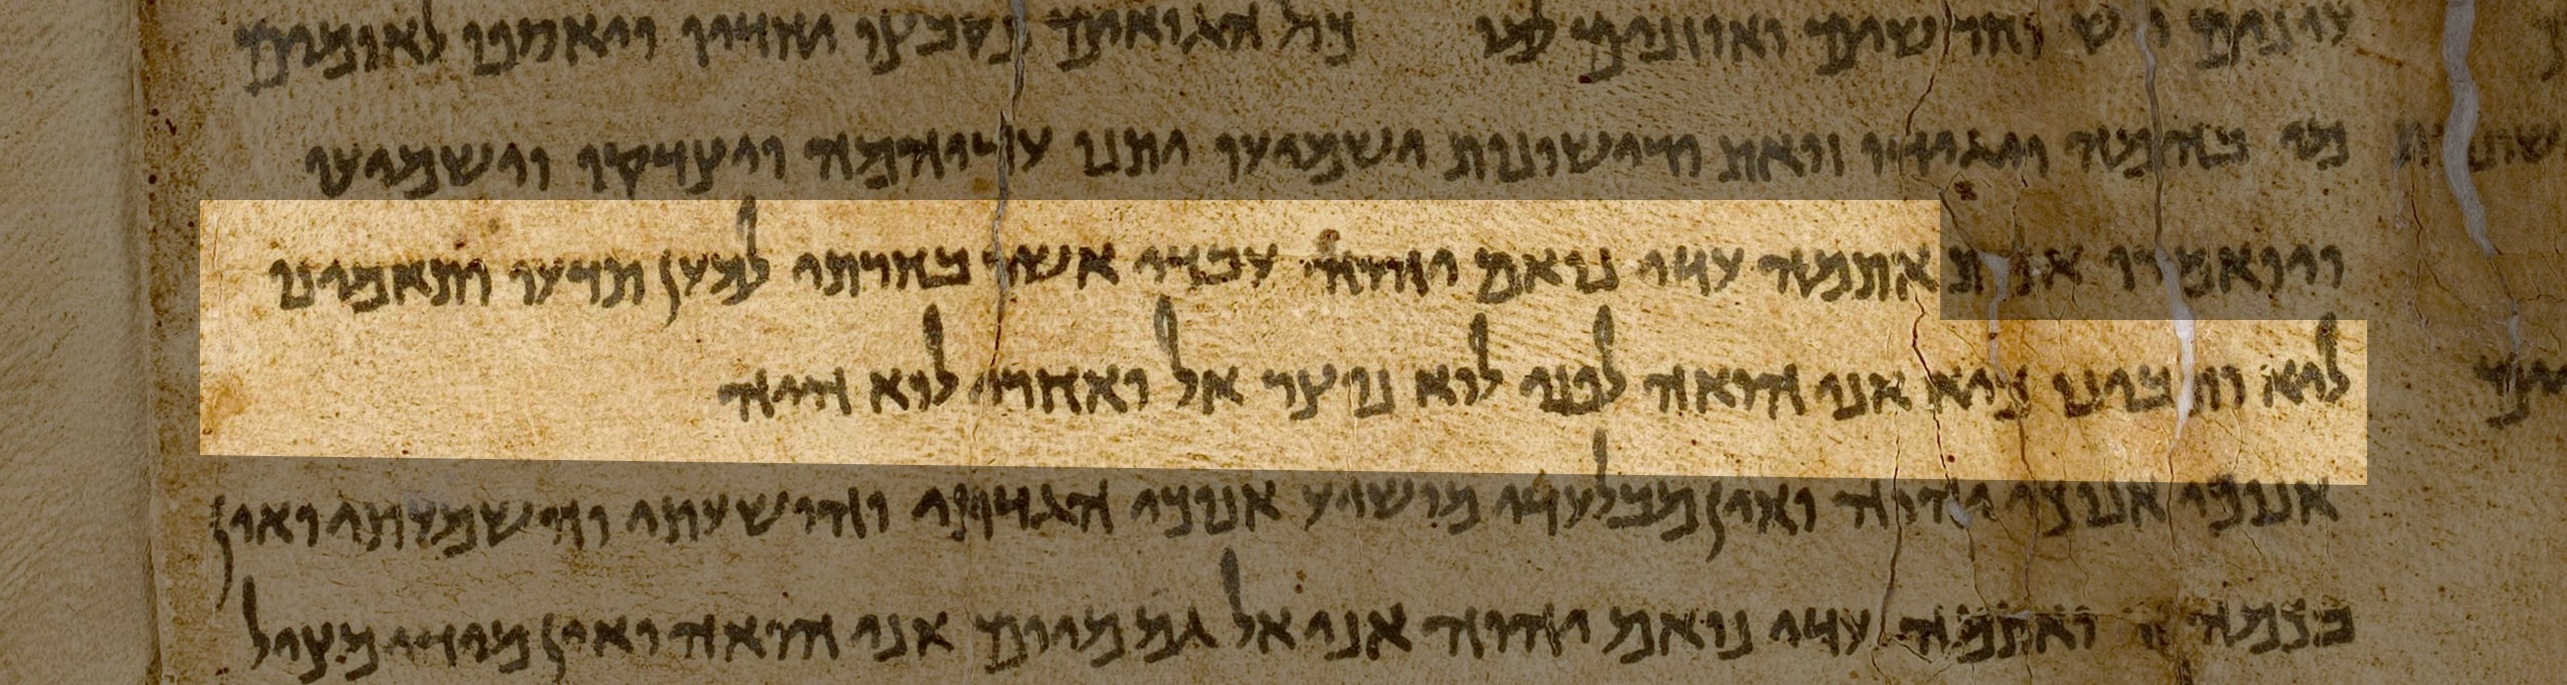 עינים יש וחרשים ואוזנים למו כול הגואים נקבצו יחדיו ויאספו לאומים
מי בהמה ויגידו זואת הרישונות ישמיעו יתנו עידיהמה ויצדקו וישמיעו
ויואמרו אמת אתמה עדי נואם יהוה עבדי אשר בחרתי למען תדעו ותאמינו
לוא והבינו כיא אני הואה לפני לוא נוצר אל ואחרי לוא היה
אנוכי אנוכי יהוה ואין מבלעדי מושיע אנוכי הגדתי והושעתי והשמעתי ואין
בכמה ואתמה עדי נואם יהוה אני אל גם מיום אני הואה ואין מידי מציל